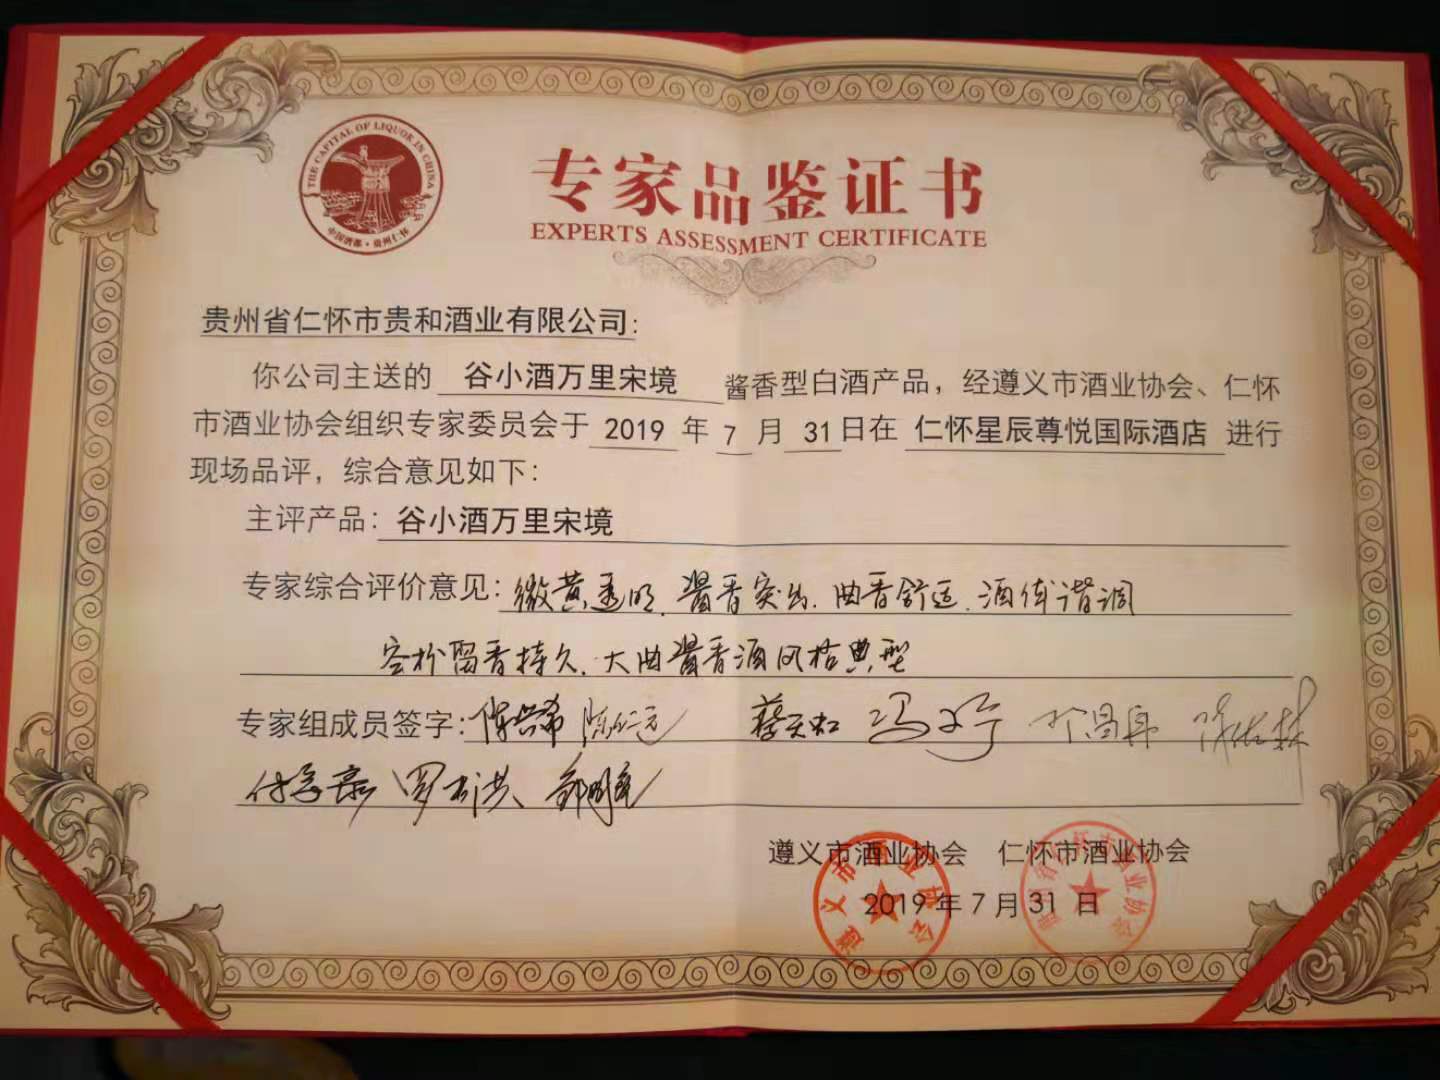 THE CAPITAL OF LIQUOR IN CHINA
中国酒都·贵州仁怀
专家品鉴证书
EXPERTS ASSESSMENT CERTIFICATE
贵州省仁怀市贵和酒业有限公司:
你公司主送的 谷小酒万里宋境 酱香型白酒产品，经遵义市酒业协会、仁怀
市酒业协会组织专家委员会于 2019 年 7 月 31 日在 仁怀星辰尊悦国际酒店 进行
现场品评，综合意见如下:
主评产品: 谷小酒万里宋境
专家综合评价意见: 微黄透明、酱香突出、曲香舒适、酒体谐调
空杯留香持久、大曲酱香酒风格典型
专家组成员签字:
遵义市酒业协会 仁怀市酒业协会
2019 年 7 月 31 日
遵义市酒业协会
贵州省仁怀市酒业协会